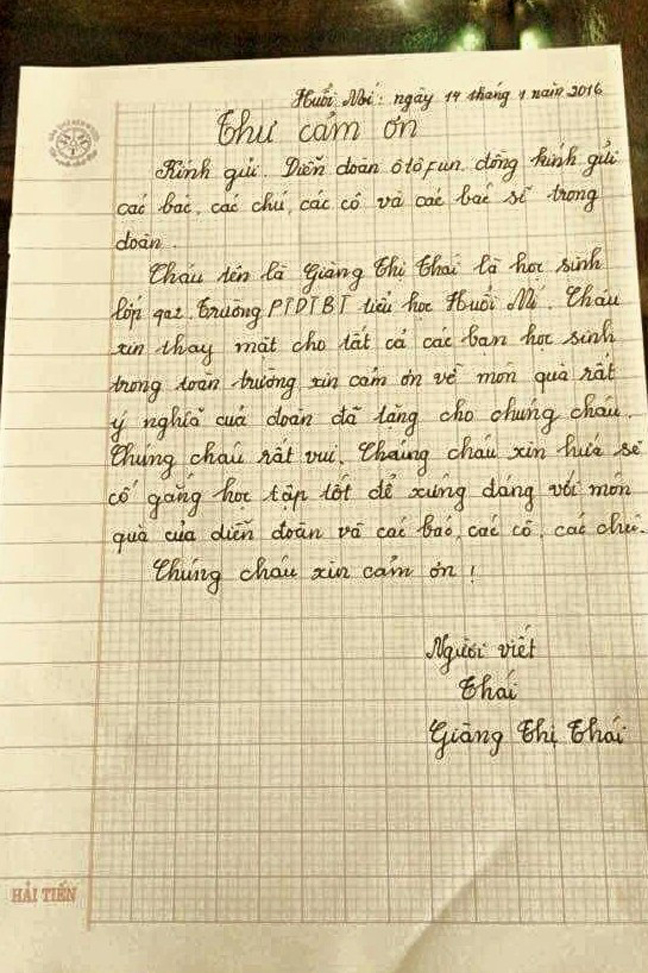 Huổi Mí: ngày 14 tháng 1 năm 2016
Thư cảm ơn
Kính gửi. Diễn đoàn ôtôfun. đồng kính gửi
các bác, các chú, các cô và các bác sĩ trong
đoàn.
Cháu tên là Giàng Thị Thái là học sinh
lớp 4a2. Trường PTDTBT tiểu học Huổi Mí. Cháu
xin thay mặt cho tất cả các bạn học sinh
trong toàn trường xin cảm ơn về món quà rất
ý nghĩa của đoàn đã tặng cho chúng cháu.
Chúng cháu rất vui. Chúng cháu xin hứa sẽ
cố gắng học tập tốt để xứng đáng với món
quà của diễn đoàn và các bác, các cô, các chú.
Chúng cháu xin cảm ơn!
Người viết
Thái
Giàng Thị Thái
HẢI TIẾN